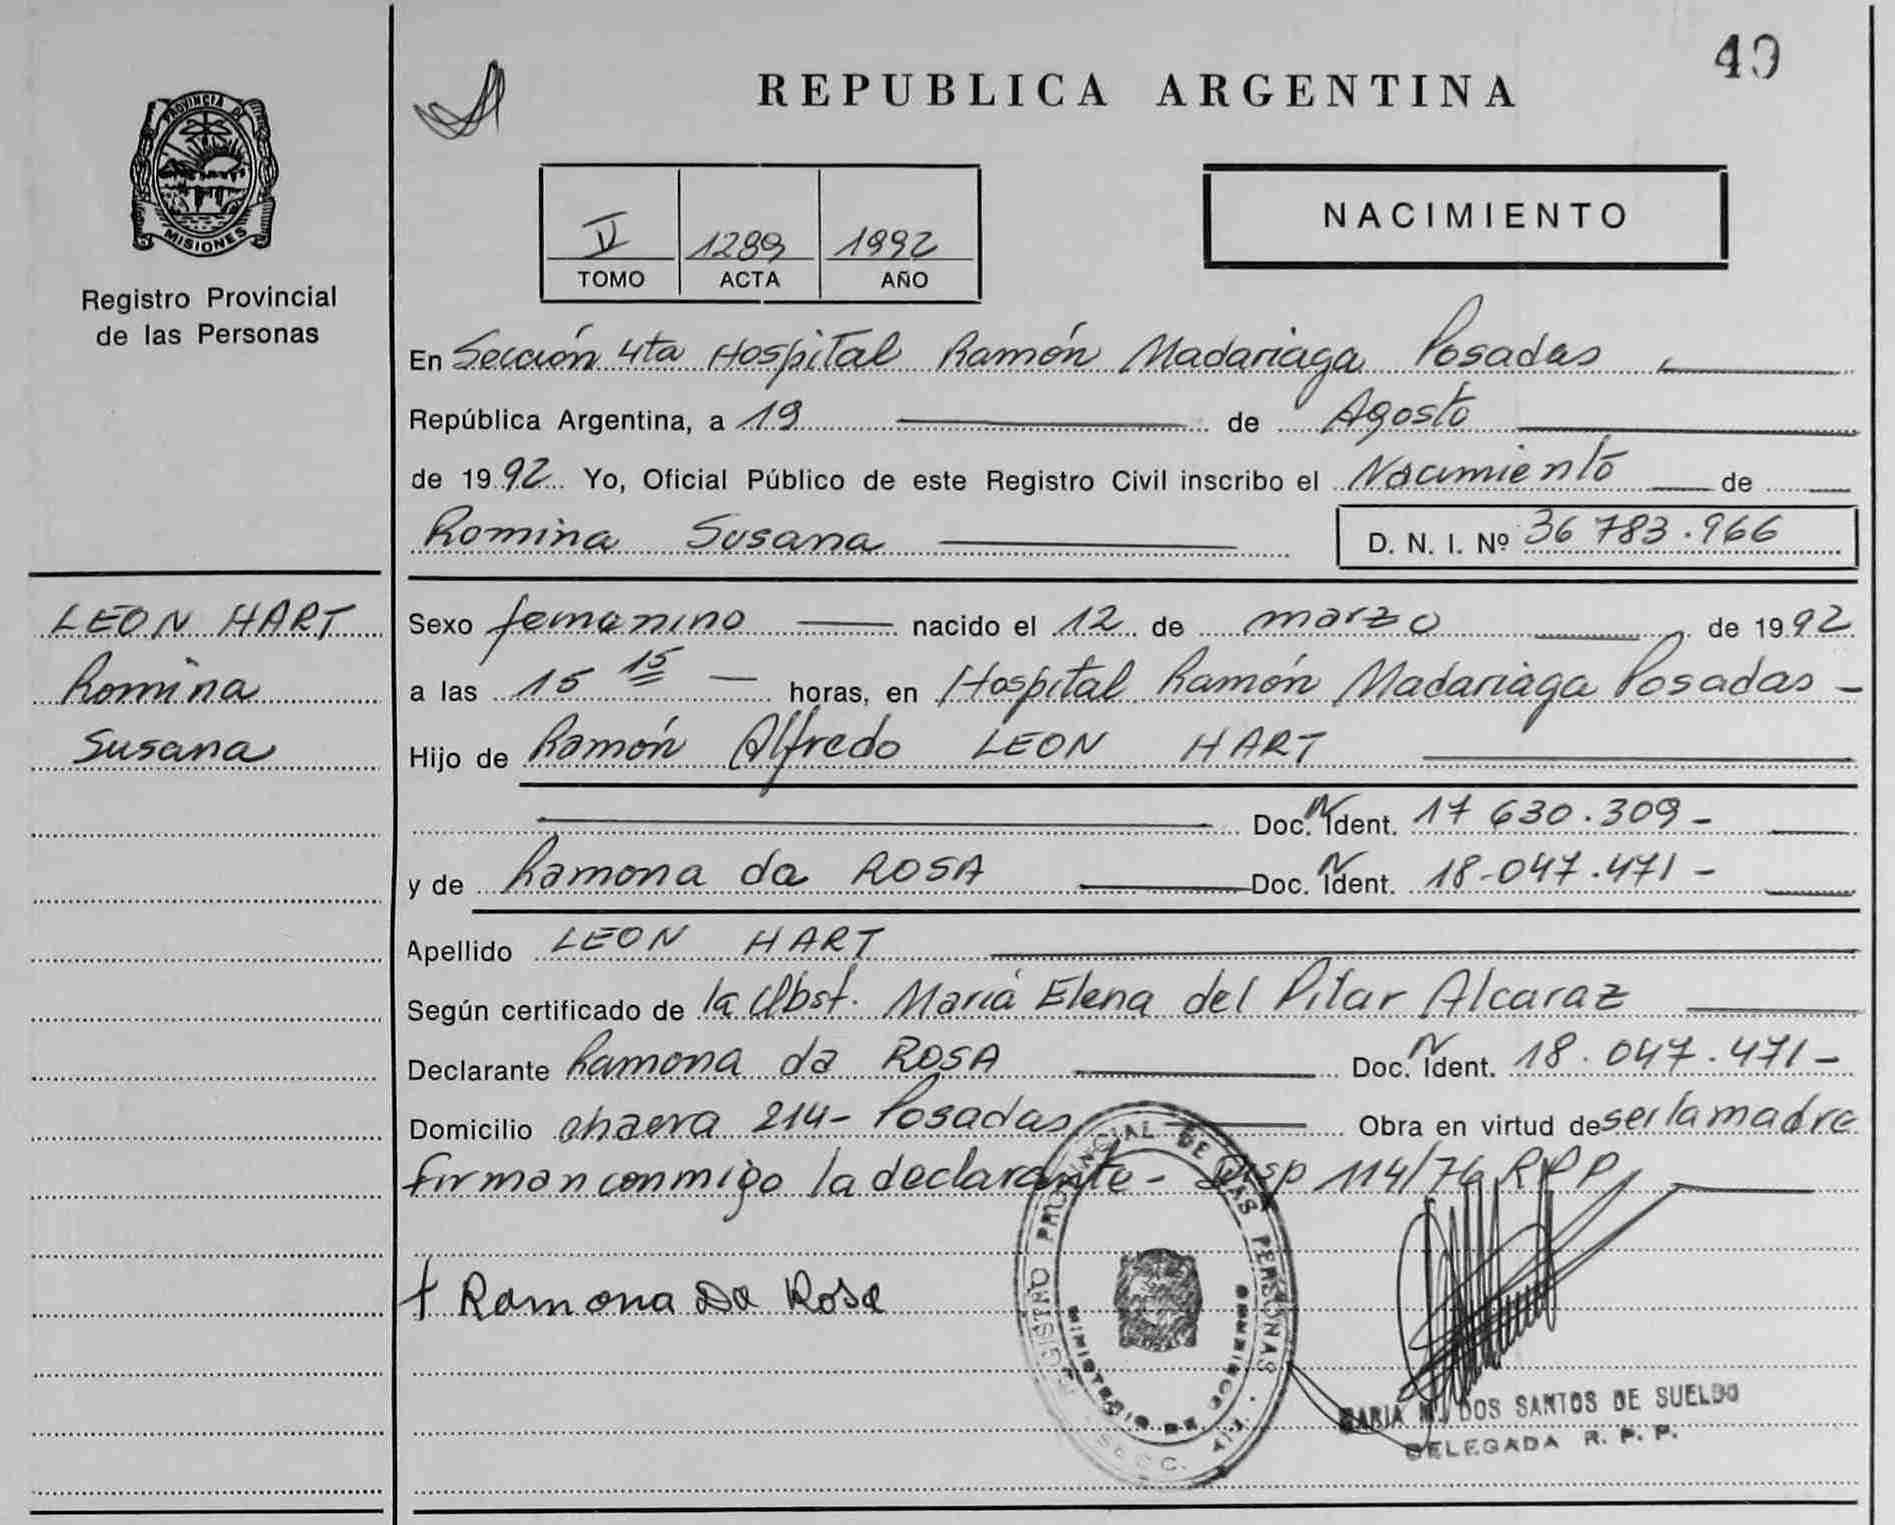 49
REPUBLICA ARGENTINA
PROVINCIA DE
MISIONES
Registro Provincial
de las Personas
II 1289 1992
TOMO ACTA AÑO
NACIMIENTO
En Sección 4ta Hospital Ramón Madariaga Posadas
República Argentina, a 19 de Agosto
de 1992 Yo, Oficial Público de este Registro Civil inscribo el Nacimiento de
Romina Susana D. N. I. Nº 36 783.966
LEON HART
Romina
Susana
Sexo femenino nacido el 12 de marzo de 1992
a las 15 15 horas, en Hospital Ramón Madariaga Posadas -
Hijo de Ramón Alfredo LEON HART
Doc. N Ident. 17 630.309 -
y de Ramona da ROSA Doc. N Ident. 18-047.471 -
Apellido LEON HART
Según certificado de la Obst. María Elena del Pilar Alcaraz
Declarante Ramona da ROSA Doc. N Ident. 18.047.471 -
Domicilio chacra 214 - Posadas Obra en virtud de ser la madre
firman conmigo la declarante - Disp 114/76 RPP
Ramona Da Rosa
REGISTRO PROVINCIAL DE LAS PERSONAS
MINISTERIO DE GOBIERNO
MARIA M. DOS SANTOS DE SUELDO
DELEGADA R. P. P.